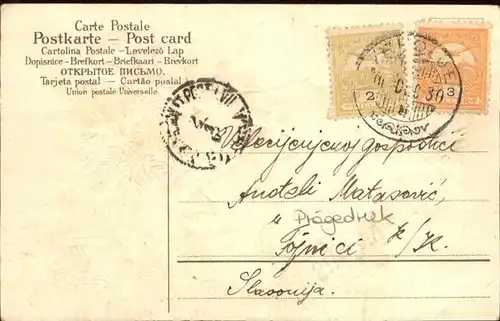 Carte Postale
Postkarte – Post card
Cartolina Postale – Levelező Lap
Dopisnice – Brefkort – Briefkaart – Brevkort
ОТКРЫТОЕ ПИСЬМО.
Tarjeta postal – Cartão postal
Union postale Universelle.
2
3
DEC 30
gospodici
Andteli Matasović
u
Prägedruck
Slavonija.